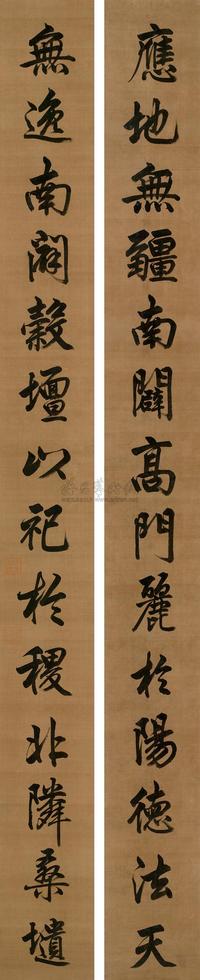 應地無疆南闢高門麗於陽德法天
無逸南開穀壇以祀於稷非隣桑壝